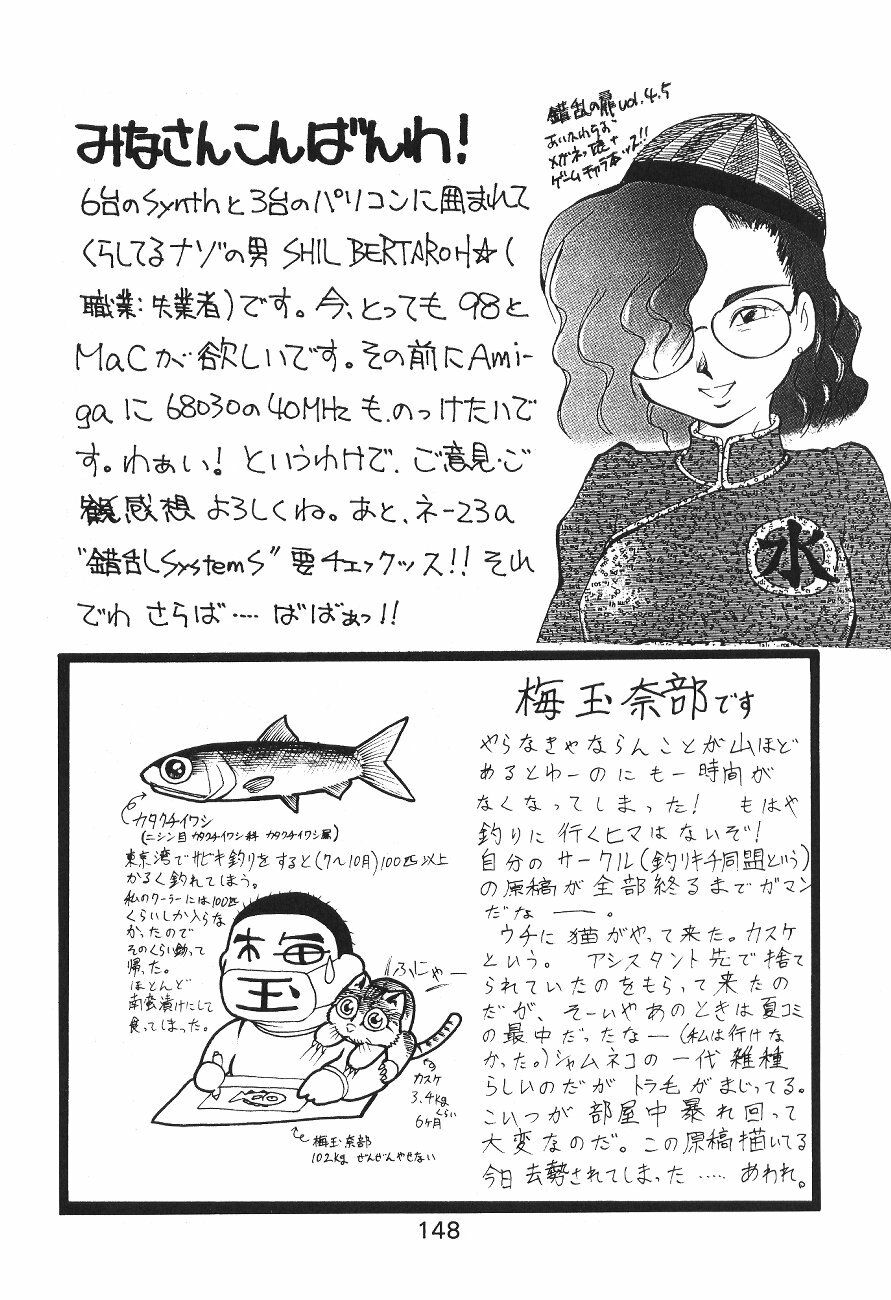 みなさんこんばんわ!
6台のSynthと3台のパソコンに囲まれて
くらしてるナゾの男 SHIL BERTAROH☆(
職業:失業者)です。今、とっても 98と
MaCが欲しいです。その前にAmi-
gaに 68030の40MHzも、のっけたいで
す。わぁい! というわけで、ご意見・ご
感想 よろしくね。あと、ネー23a
"錯乱SystemS"要チェックッス!! それ
でわ さらば‥‥ ばばぁっ!!
錯乱の扉vol.4.5
ゲームキャラ本ッス!!
水
梅玉奈部です
やらなきゃならんことが山ほど
あるとゆーのにもー時間が
なくなってしまった! もはや
釣りに行くヒマはないぞ!
自分のサークル(釣りキチ同盟という)
の原稿が全部終るまでガマン
だなー。
ウチに猫がやって来た。カスケ
という。 アシスタント先で捨て
られていたのをもらって来たの
だが、そーいやあのときは夏コミ
の最中だったなー(私は行けな
かった。)シャムネコの一代雑種
らしいのだがトラ毛がまじってる。
こいつが部屋中暴れ回って
大変なのだ。この原稿描いてる
今日去勢されてしまった‥‥‥あわれ。
カタクチイワシ
(ニシン目 カタクチイワシ科 カタクチイワシ属)
東京湾でサビキ釣りをすると(7〜10月)100匹以上
かるく釣れてしまう。
私のクーラーには100匹
くらいしか入らな
かったので
そのくらい釣って
帰った。
ほとんど
南蛮漬けにして
食ってしまった。
梅
玉
ふにゃー
カスケ
3.4kg
くらい
6ヶ月
梅玉奈部
102kg ぜんぜんやせない
148